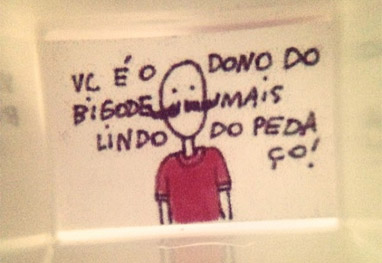 VC É O DONO DO
BIGODE MAIS
LINDO DO PEDA
ÇO!